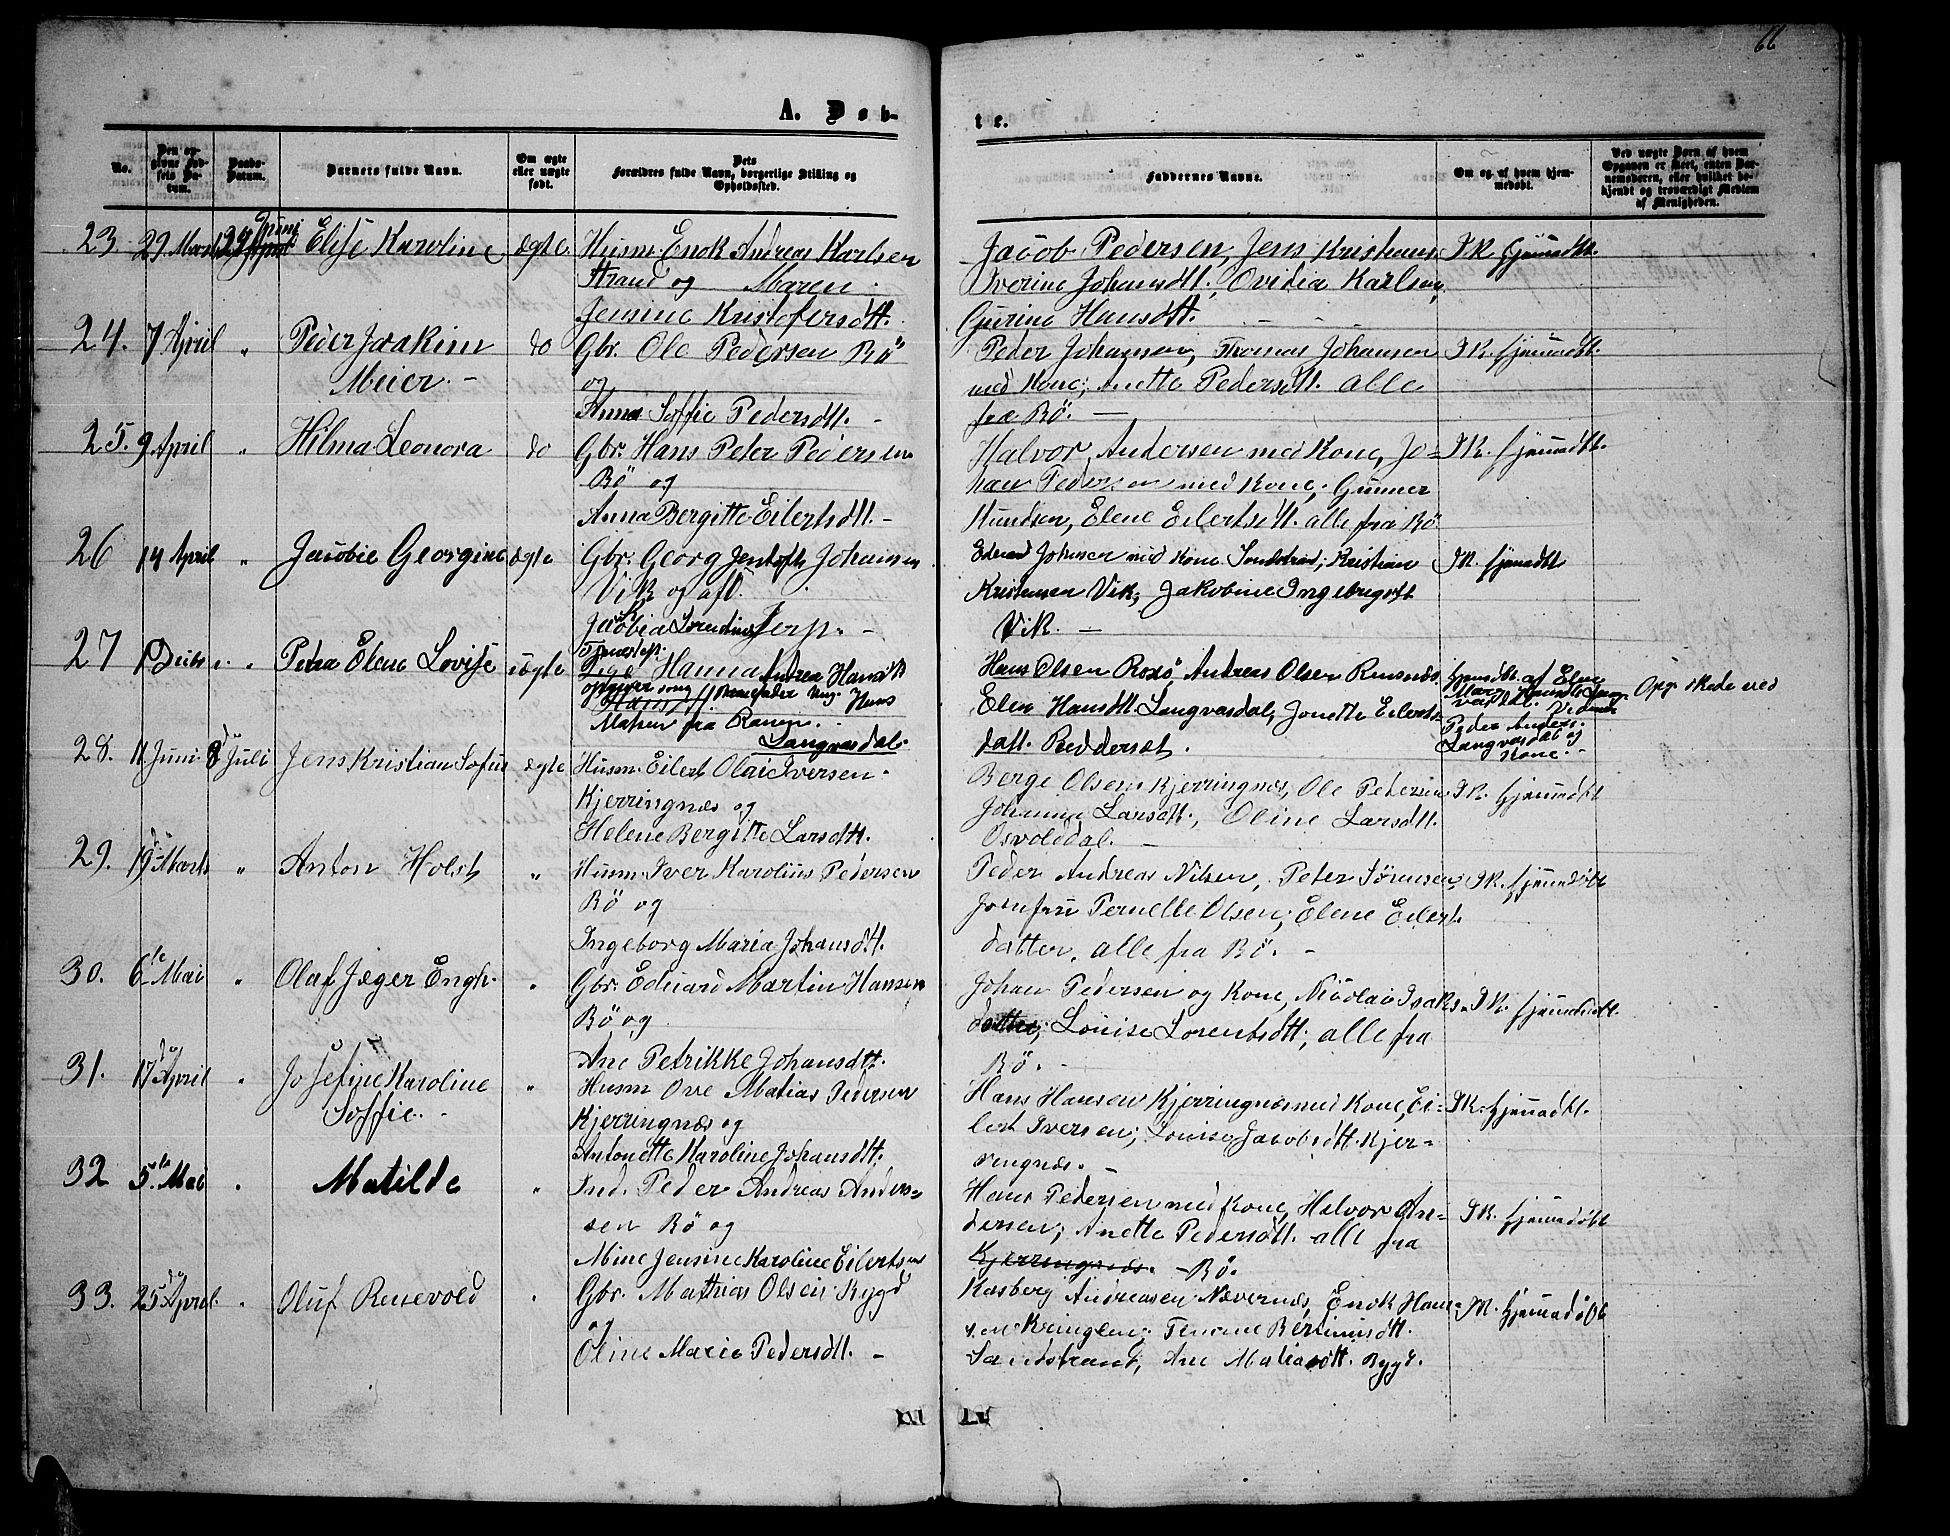 66
A. Døb-
te.
No.
Den op-
givne Fød-
sels Da-
tum.
Daabs-
Datum.
Barnets fulde Navn.
Om ægte
eller uægte
født.
Dets
Forældres fulde Navn, borgerlige Stilling og
Opholdssted.
Faddernes Navne.
Om og af hvem hjem-
medøbt.
Ved uægte Børn af hvem
Opgaven er skeet, enten Bar-
nemoderen, eller hvilket be-
kjendt og troværdigt Medlem
af Menigheden.
23. 29. Marts Juni Elise Karoline ægte Husm. Enok Andreas Karlsen
Strand og Maren
Jensine Kristofersdtt.
Jacob Pedersen, Jens Kristians
Iverine Johansdtt., Ovidia Karlsen,
Gurine Hansdtt.
I K. hjemdbt.
24. 7 April " Peder Joakim
Meier. -
do Gbr. Ole Pedersen Bö
og
Anna Soffie Pedersdtt. -
Peder Johansen, Thomas Johansen
med Kone; Anette Pedersdtt. alle
fra Bö. -
I K. hjemdbt.
25. 9 April " Hilma Leonora do Gbr. Hans Peter Pedersen
Bö og
Anna Bergitte Eilertsdtt. -
Halvor Andersen med Kone, Jo-
han Pedersen med Kone; Gunner
Knudsen, Elene Eilertsdtt. alle fra Bö
I K. hjemdbt.
26 14 April " Jacobie Georgine ægte Gbr. Georg Jentoft Johansen
Vik og
Jacobia
Johnsen med Kone Sandstrand; Kristian
Kristensen Vik; Jakobine Ingebrigtsdt
Vik. -
I K. hjemdbt
27 " Petra Elene Lovise uægte Pige Hanna Andrea Hansdtt
opgiver som Barnefader Ung. Hans
Matsen fra Ranen. -
Langvasdal.
Hans Olsen Rosö, Andreas Olsen
Elen Hansdtt. Langvasdal, Jonette Eilerts
datt.
hjemdbt. af Elen
Peder Anders.
Langvasdal og
Kone. -
Opg. skede ved
28. 11 Juni 8 Juli Jens Kristian Sofus ægte Husm. Eilert Olai Iversen
Kjerringnæs og
Helene Bergitte Larsdtt.
Berge Olsen Kjerringnæs, Ole Pedersen
Johanna Larsdtt., Oline Larsdtt.
Osvolddal. -
I K. hjemdbt
29. 19de Marts " Anton Holst " Husm. Iver Karolius Pedersen
Bö og
Ingeborg Maria Johansdtt.
Peder Andreas Nilsen, Peter Sörensen,
Jomfru Pernelle Olsen; Elene Eilert
datter, alle fra Bö. -
I K. hjemdöbt
30. 6te Mai " Olaf Jæger Engh. " Gbr. Eduard Martin Hansen
Bö, og
Ane Petrikke Johansdtt.
Johan Pedersen og Kone, Nicolai Isaks-
Louise Lorentsdtt; alle fra
Bö. -
I K. hjemdöbt.
31. 17de April " Josefine Karoline
Soffie. -
" Husm Ove Matias Pedersen
Kjerringnæs og
Antonette Karoline Johansdtt.
Hans Hansen Kjerringnæs med Kone, Ei-
lert Iversen; Louise Jacobsdtt. Kjer-
ringnæs. -
I K. hjemdbt.
32 5te Mai " Matilde " Ind. Peder Andreas Ander-
sen Bö og
Mine Jensine Karoline Eilertsen
Hans Pedersen med Kone, Halvor An-
dersen; Anette Pedersdtt. alle fra
Kjerringnæs. - Bö.
I K. hjemdöbt
33. 25de April. " Oluf Rensvold " Gbr. Mathias Olsen Bygd
og
Oline Marie Pedersdtt. -
Kasberg Andreasen Nævernæs, Enok Han-
sen Kringlen;
Sandstrand, Ane Matiasdtt. Bygd.
I K. hjemdöbt